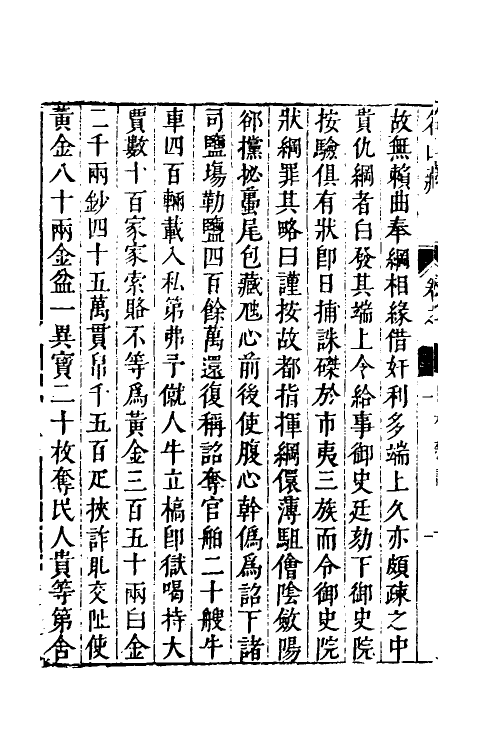 故無賴曲奉綱相緣借奸利多端上久亦頗疎之中
貴仇綱者白發其端上令給事御史廷劾下御史院
按驗俱有狀即日捕誅磔於市夷三族而令御史院
狀綱罪其略曰謹按故都指揮綱儇薄駔儈陰斂陽
郤攩祕蠆尾包藏虺心前後使腹心幹僞爲詔下諸
司鹽塲勒鹽四百餘萬還復稱詔奪官舶二十艘牛
車四百輛載入私第弗予僦人牛立槁即獄喝持大
賈數十百家家索賂不等爲黃金三百五十兩白金
二千兩鈔四十五萬貫帛千五百疋挾詐取交阯使
黃金八十兩金盆一異寶二十枚奪民人貴等第舍